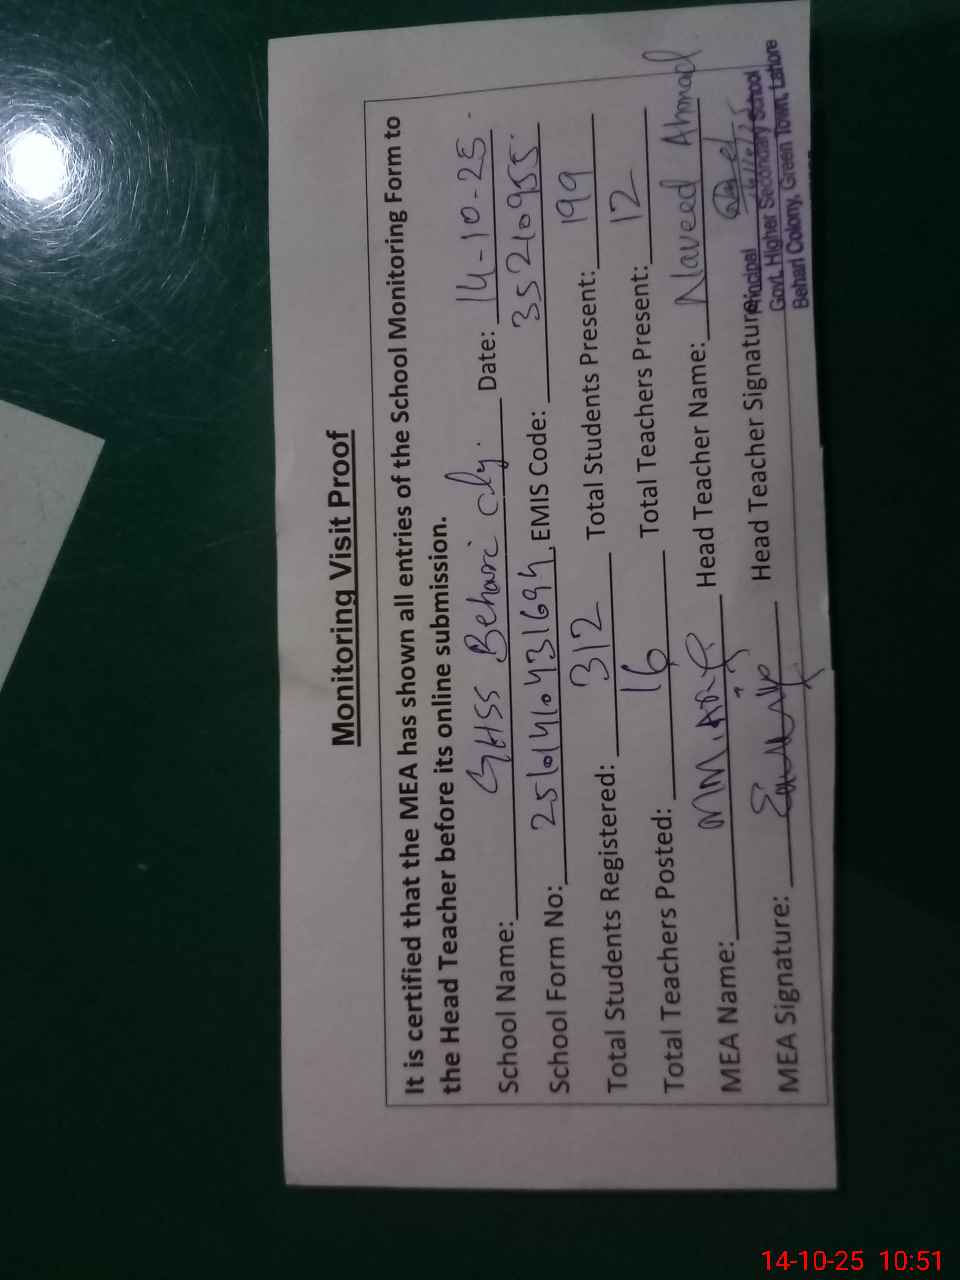 Monitoring Visit Proof
It is certified that the MEA has shown all entries of the School Monitoring Form to
the Head Teacher before its online submission.
School Name: GHSS Behari cly. Date: 14-10-25.
School Form No: EMIS Code: 35210955
Total Students Registered: 312 Total Students Present: 199
Total Teachers Posted: 16 Total Teachers Present: 12
MEA Name: Head Teacher Name: Naveed Ahmad
MEA Signature: Head Teacher Signature:
Principal
Govt. Higher Secondary School
Behari Colony, Green Town, Lahore
14-10-25 10:51